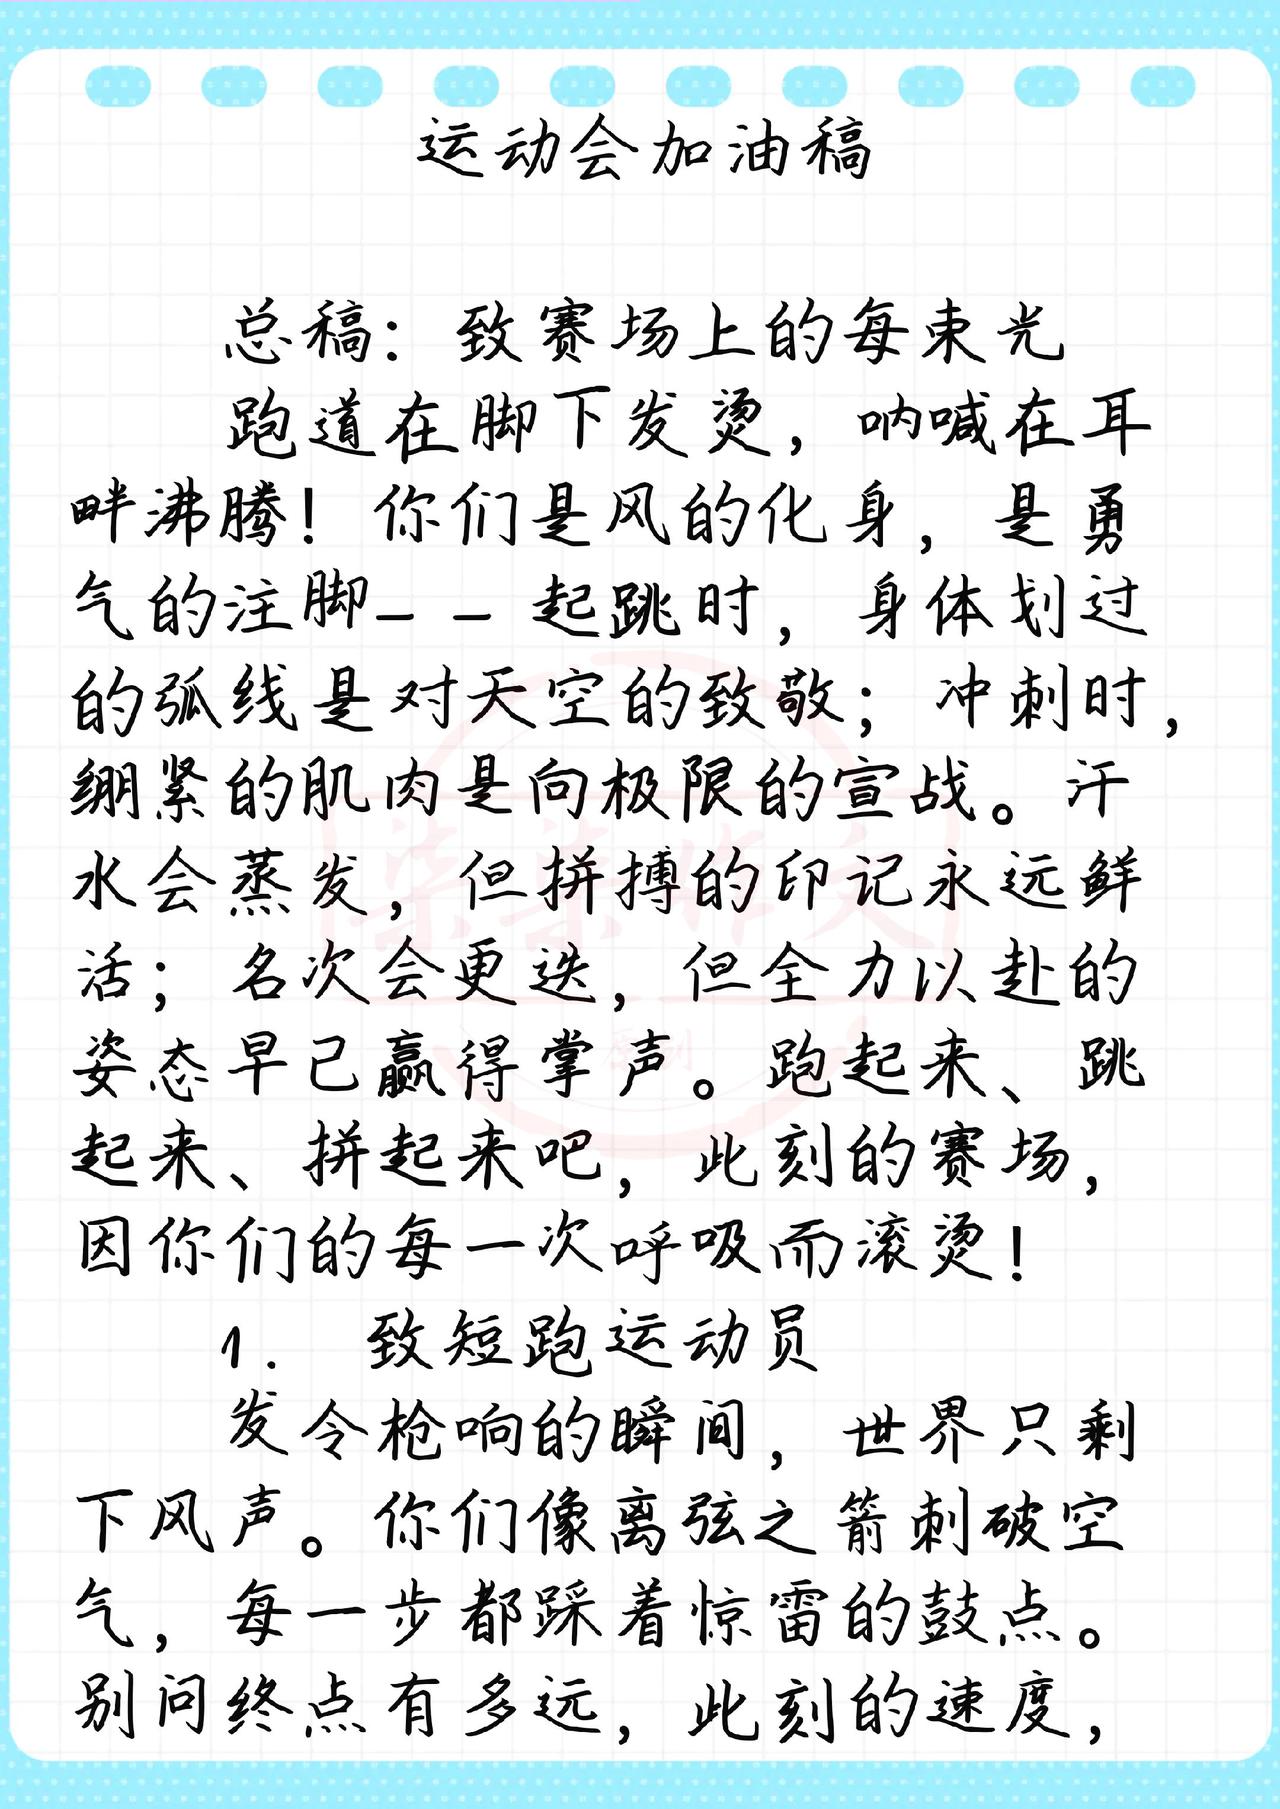 运动会加油稿
总稿：致赛场上的每束光
跑道在脚下发烫，呐喊在耳
畔沸腾！你们是风的化身，是勇
气的注脚——起跳时，身体划过
的弧线是对天空的致敬；冲刺时，
绷紧的肌肉是向极限的宣战。汗
水会蒸发，但拼搏的印记永远鲜
活；名次会更迭，但全力以赴的
姿态早已赢得掌声。跑起来、跳
起来、拼起来吧，此刻的赛场，
因你们的每一次呼吸而滚烫！
1. 致短跑运动员
发令枪响的瞬间，世界只剩
下风声。你们像离弦之箭刺破空
气，每一步都踩着惊雷的鼓点。
别问终点有多远，此刻的速度，